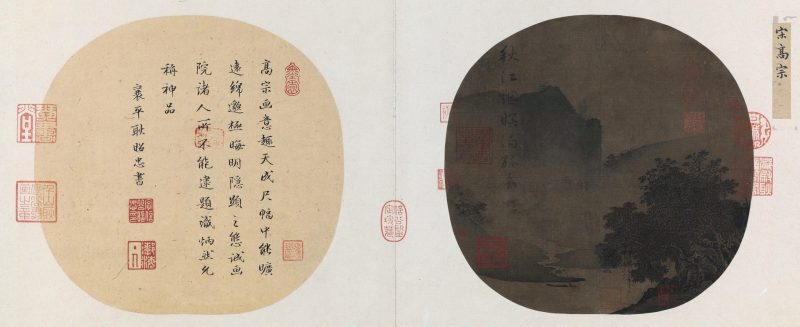 宋高宗
秋江烟暝泊孤舟
高宗画意趣天成尺幅中能曠
遠綿邈極晦明隱顯之態誠画
院諸人所不能逮題識炳然允
稱神品
襄平耿昭忠書